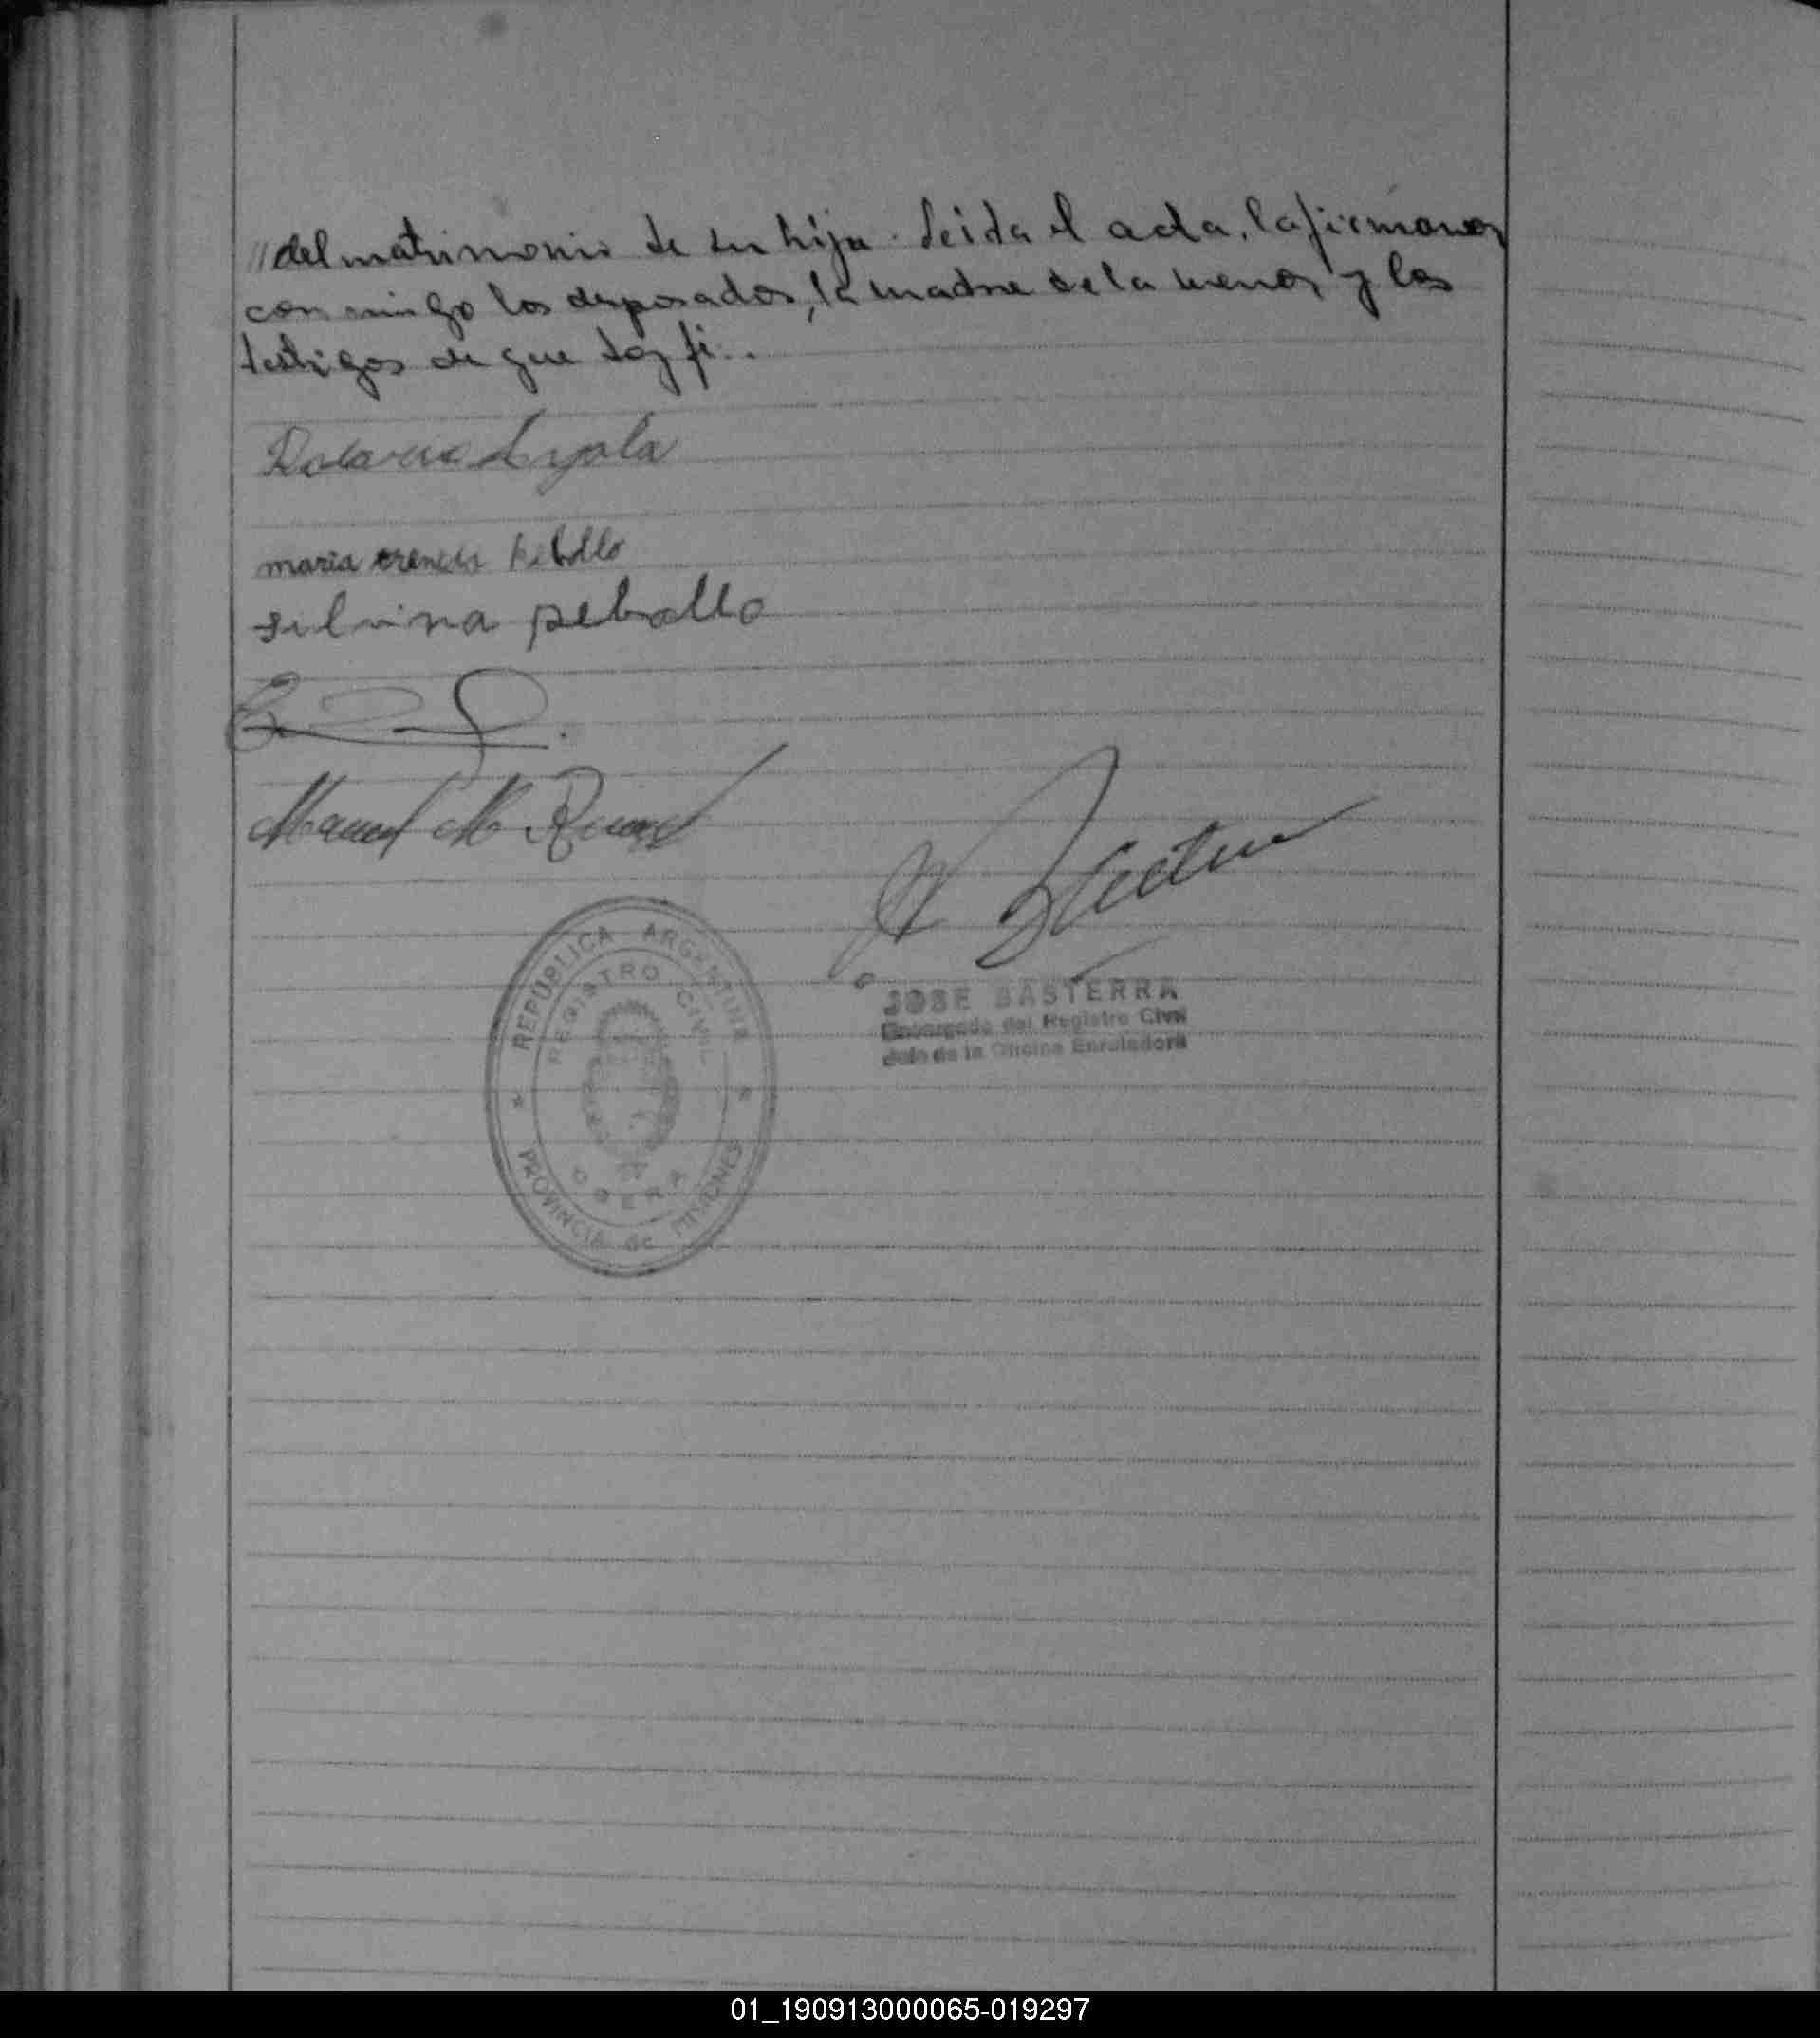 //del matrimonio de su hija. Leida el acta, la firmaron
conmigo los desposados, la madre de la menor y los
testigos de que doy fé..
Ayala
maria Rebollo
silvina rebollo
Manuel M.
JOSE BASTERRA
Encargado del Registro Civil
Jefe de la Oficina Enroladora
REPUBLICA ARGENTINA
REGISTRO CIVIL
OBERA
PROVINCIA de MISIONES
01_190913000065-019297